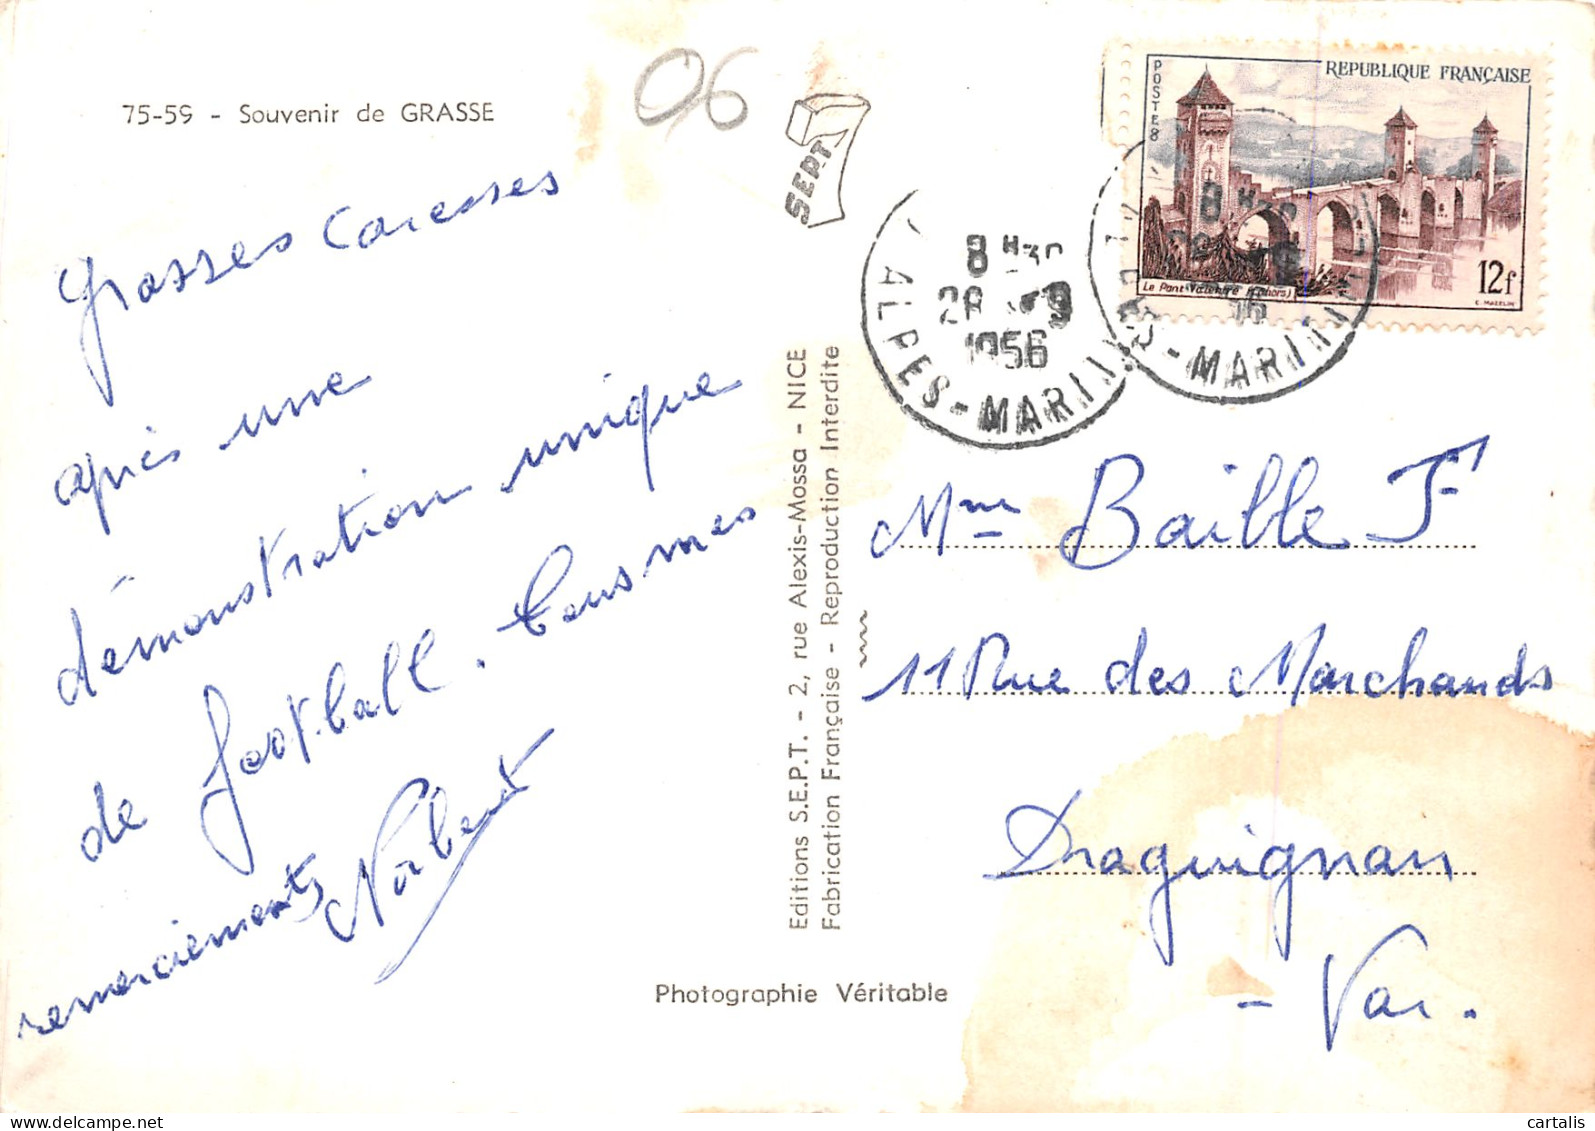 75-59 - Souvenir de GRASSE
06
SEPT
Grasses Caresses
après une
démonstration unique
de foot-ball. Tous mes
remerciements
Norbert
Editions S.E.P.T. - 2, rue Alexis-Mossa - NICE
Fabrication Française - Reproduction Interdite
Photographie Véritable
8 H30
28 9
1956
ALPES-MARIT
POSTES
REPUBLIQUE FRANÇAISE
Le Pont Valentré (Cahors)
12f
C. MAZELIN
8 H30
56
ALPES-MARIT
Mme Baille F
11 Rue des Marchands
Draguignan
- Var.
cartalis | delcampe.net